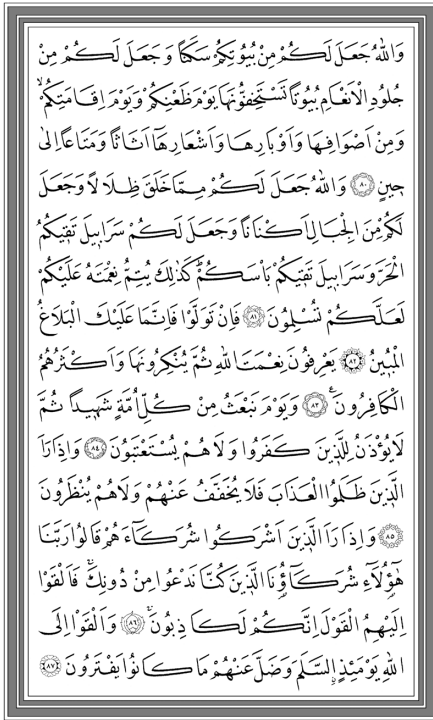 وَاللّٰهُ جَعَلَ لَكُمْ مِنْ بُيُوتِكُمْ سَكَنًا وَجَعَلَ لَكُمْ مِنْ
جُلُودِ الْاَنْعَامِ بُيُوتًا تَسْتَخِفُّونَهَا يَوْمَ ظَعْنِكُمْ وَيَوْمَ اِقَامَتِكُمْۙ
وَمِنْ اَصْوَافِهَا وَاَوْبَارِهَا وَاَشْعَارِهَٓا اَثَاثًا وَمَتَاعًا اِلٰى
حِينٍ ﴿٨٠﴾ وَاللّٰهُ جَعَلَ لَكُمْ مِمَّا خَلَقَ ظِلَالًا وَجَعَلَ
لَكُمْ مِنَ الْجِبَالِ اَكْنَانًا وَجَعَلَ لَكُمْ سَرَابِيلَ تَقِيكُمُ
الْحَرَّ وَسَرَابِيلَ تَقِيكُمْ بَاْسَكُمْۜ كَذٰلِكَ يُتِمُّ نِعْمَتَهُ عَلَيْكُمْ
لَعَلَّكُمْ تُسْلِمُونَ ﴿٨١﴾ فَاِنْ تَوَلَّوْا فَاِنَّمَا عَلَيْكَ الْبَلَاغُ
الْمُبِينُ ﴿٨٢﴾ يَعْرِفُونَ نِعْمَتَ اللّٰهِ ثُمَّ يُنْكِرُونَهَا وَاَكْثَرُهُمُ
الْكَافِرُونَ۟ ﴿٨٣﴾ وَيَوْمَ نَبْعَثُ مِنْ كُلِّ اُمَّةٍ شَهِيدًا ثُمَّ
لَا يُؤْذَنُ لِلَّذِينَ كَفَرُوا وَلَا هُمْ يُسْتَعْتَبُونَ ﴿٨٤﴾ وَاِذَا رَاَ
الَّذِينَ ظَلَمُوا الْعَذَابَ فَلَا يُخَفَّفُ عَنْهُمْ وَلَا هُمْ يُنْظَرُونَ
﴿٨٥﴾ وَاِذَا رَاَ الَّذِينَ اَشْرَكُوا شُرَكَٓاءَهُمْ قَالُوا رَبَّنَا
هٰٓؤُ۬لَٓاءِ شُرَكَٓاؤُ۬نَا الَّذِينَ كُنَّا نَدْعُوا مِنْ دُونِكَۚ فَاَلْقَوْا
اِلَيْهِمُ الْقَوْلَ اِنَّكُمْ لَكَاذِبُونَۚ ﴿٨٦﴾ وَاَلْقَوْا اِلَى
اللّٰهِ يَوْمَئِذٍۨ السَّلَمَ وَضَلَّ عَنْهُمْ مَا كَانُوا يَفْتَرُونَ ﴿٨٧﴾